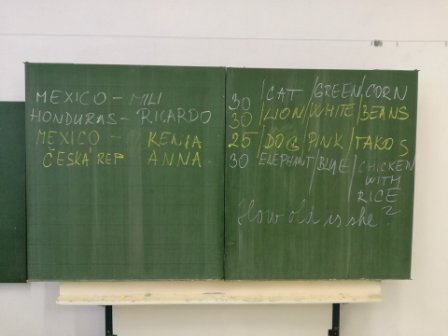 MEXICO - MILI
HONDURAS - RICARDO
MEXICO - KENIA
ČESKÁ REP ANNA
30 /CAT /GREEN/CORN
30 /LION/WHITE/BEANS
25 /DOG/PINK/TAKOS
30 ELEPHANT/BLUE/CHICKEN
WITH
RICE
How old is she?